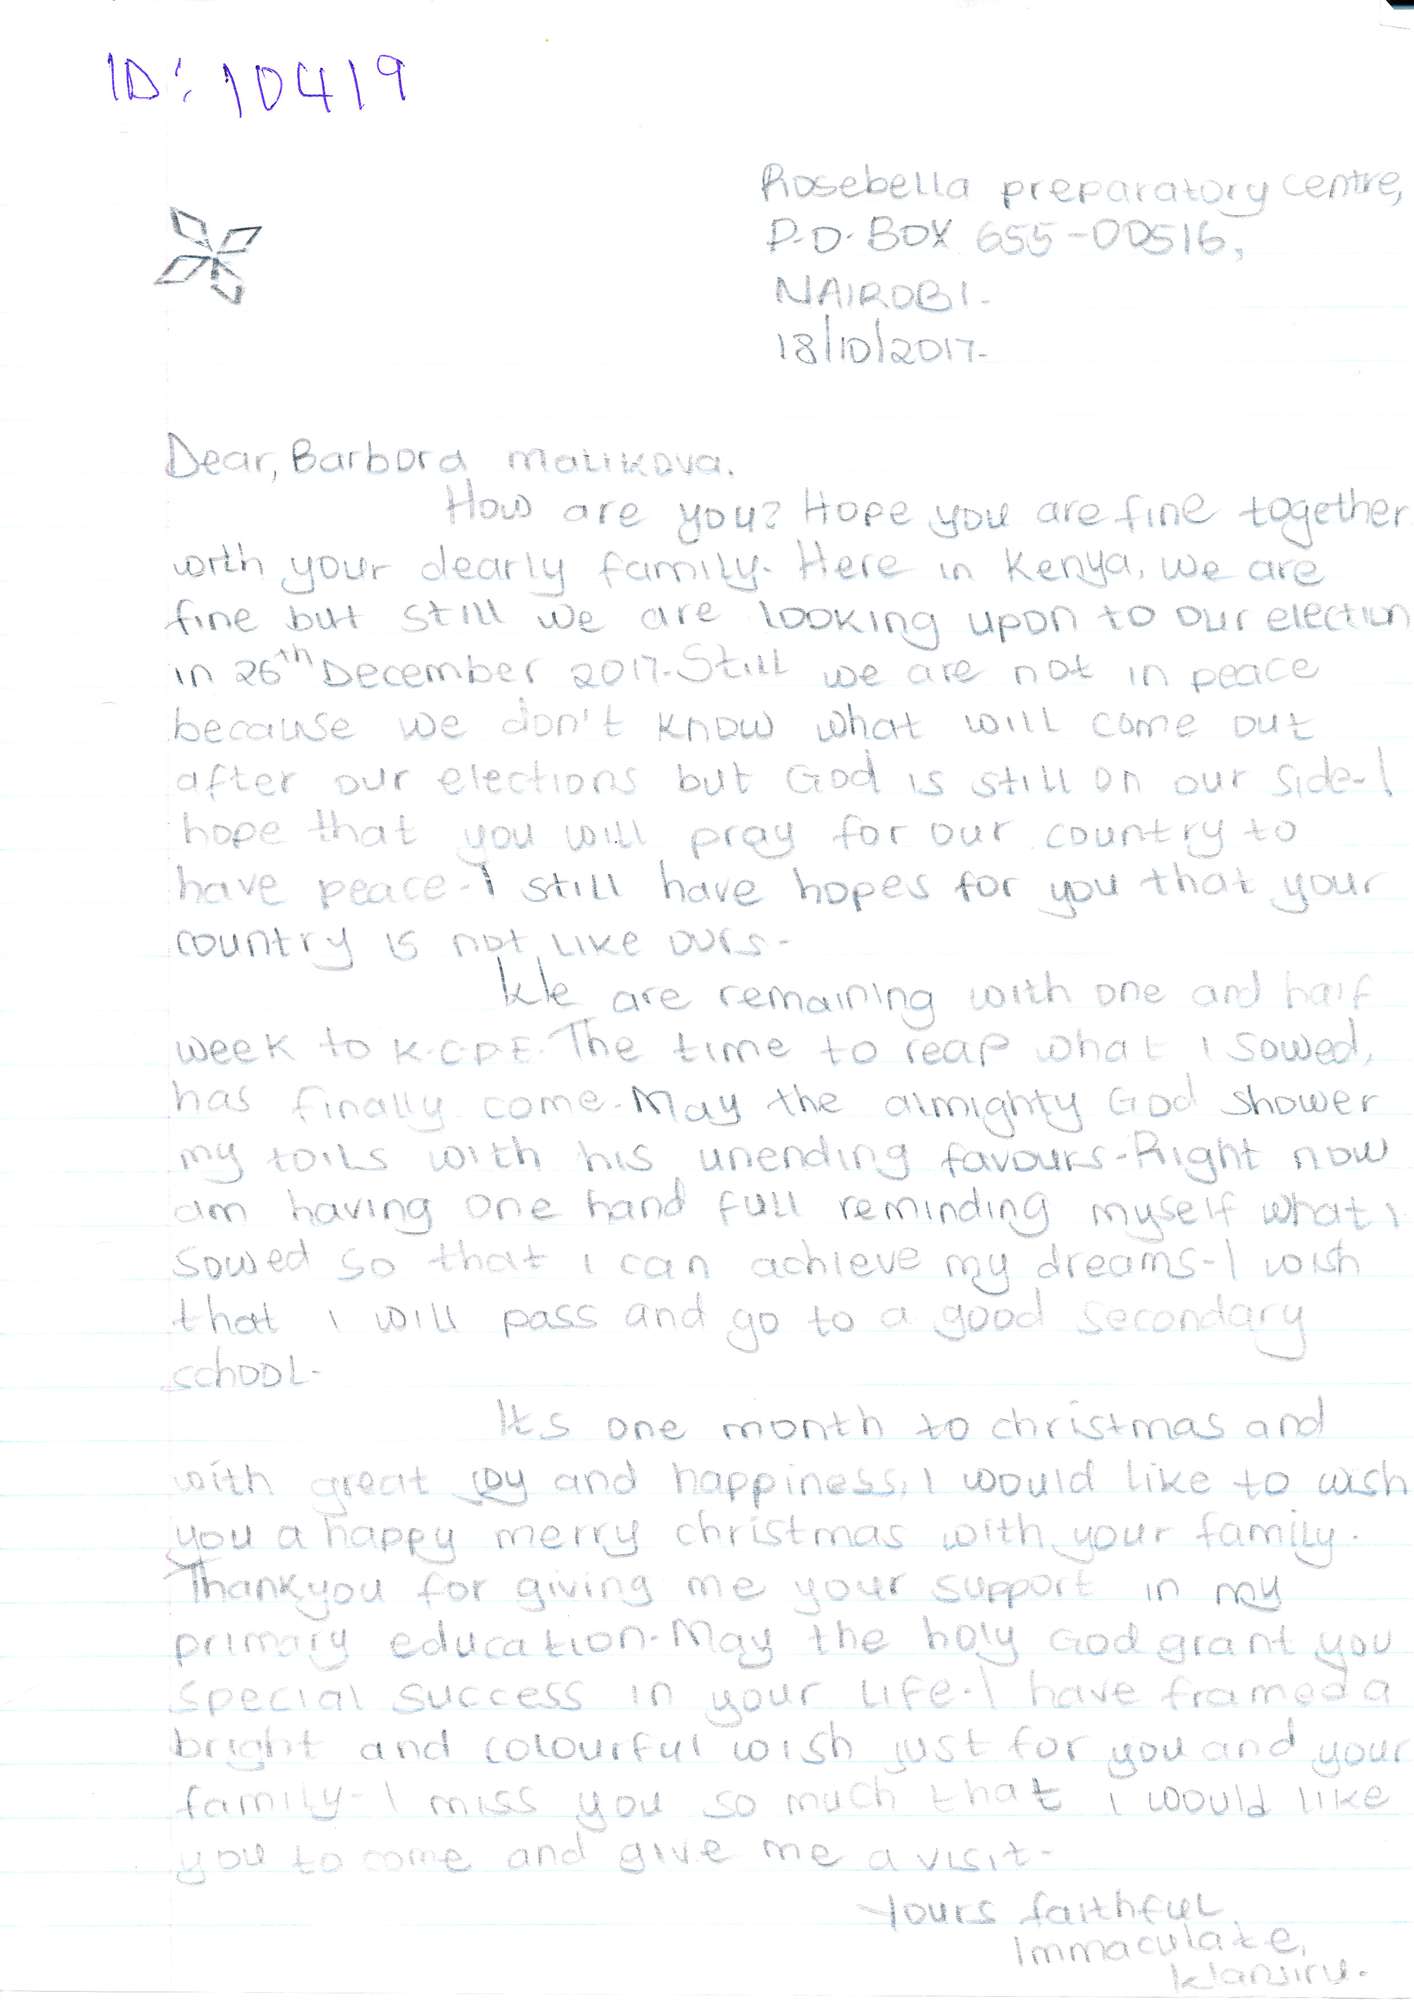 ID: 10419
Rosebella preparatory centre,
P.O. BOX 655-00516,
NAIROBI.
18/10/2017.
Dear, Barbora malikova.
How are you? Hope you are fine together
with your dearly family. Here in Kenya, we are
fine but still we are looking upon to our election
in 26th December 2017. Still we are not in peace
because we don't know what will come out
after our elections but God is still on our side. I
hope that you will pray for our country to
have peace. I still have hopes for you that your
country is not like ours.
We are remaining with one and half
week to K.C.P.E. The time to reap what i sowed,
has finally come. May the almighty God shower
my toils with his unending favours. Right now
am having one hand full reminding myself what i
sowed so that i can achieve my dreams. I wish
that i will pass and go to a good secondary
school.
Its one month to christmas and
with great joy and happiness, I would like to wish
you a happy merry christmas with your family.
Thankyou for giving me your support in my
primary education. May the holy God grant you
special success in your life. I have framed a
bright and colourful wish just for you and your
family. I miss you so much that i would like
you to come and give me a visit.
Yours faithful
Immaculate,
Wanjiru.